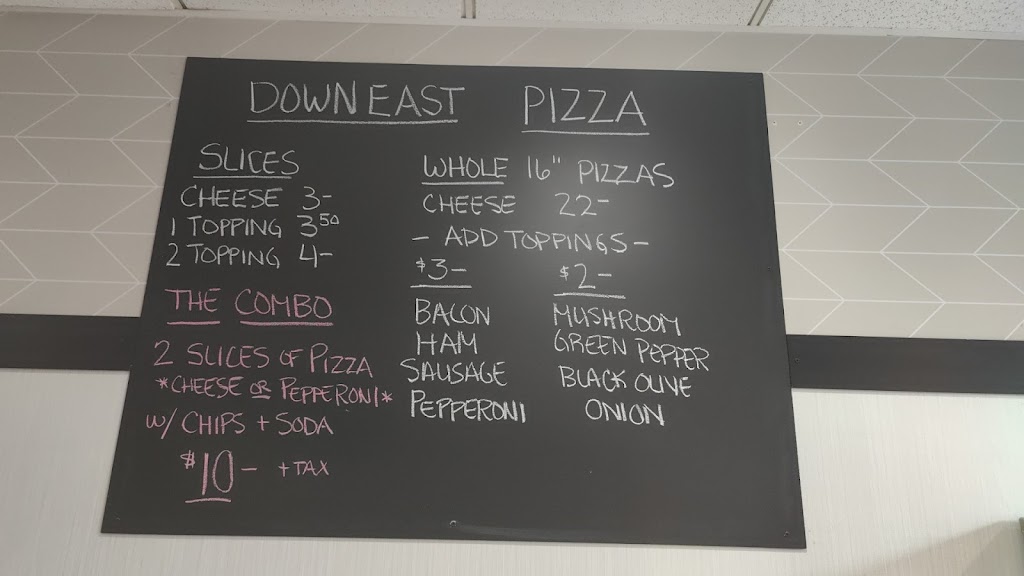 DOWNEAST PIZZA
SLICES
CHEESE 3-
1 TOPPING 3 50
2 TOPPING 4-
THE COMBO
2 SLICES OF PIZZA
*CHEESE OR PEPPERONI*
W/ CHIPS + SODA
$10- + TAX
WHOLE 16" PIZZAS
CHEESE 22-
- ADD TOPPINGS -
$3-
BACON
HAM
SAUSAGE
PEPPERONI
$2-
MUSHROOM
GREEN PEPPER
BLACK OLIVE
ONION